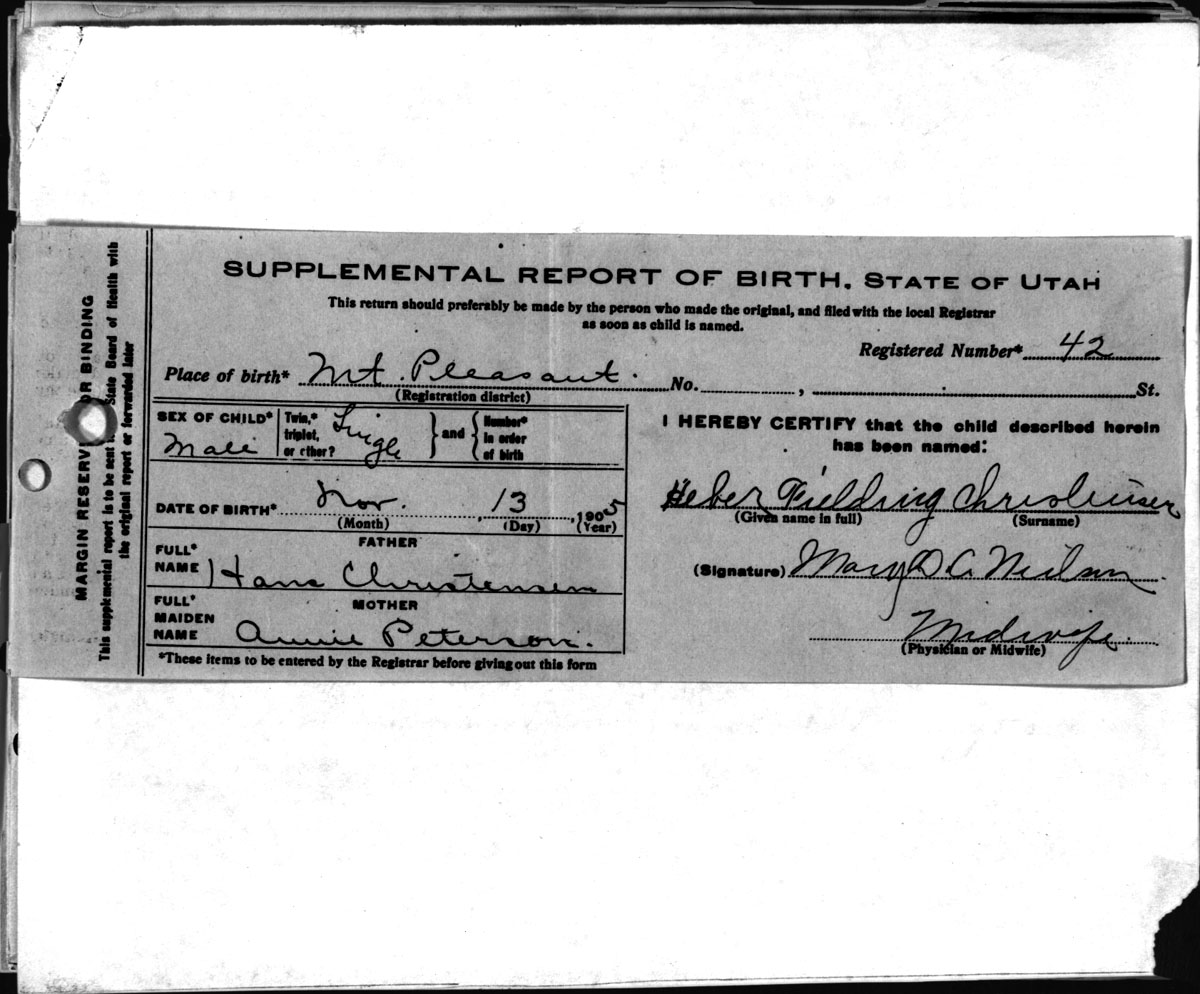 SUPPLEMENTAL REPORT OF BIRTH. STATE OF UTAH
This return should preferably be made by the person who made the original, and filed with the local Registrar
as soon as child is named.
Registered Number* 42
Place of birth* Mt. Pleasant. No. , St.
(Registration district)
SEX OF CHILD*
Male
Twin,*
triplet,
or other?
Single
and
Number*
in order
of birth
DATE OF BIRTH* Nov. , 13 , 1905
(Month) (Day) (Year)
FATHER
FULL*
NAME Hans Christensen
MOTHER
FULL*
MAIDEN
NAME Annie Peterson.
*These items to be entered by the Registrar before giving out this form
I HEREBY CERTIFY that the child described herein
has been named:
Heber Fielding Christensen
(Given name in full) (Surname)
(Signature) Mary D C. Neilson
Midwife.
(Physician or Midwife)
MARGIN RESERV OR BINDING
This supplemental report is to be sent State Board of Health with
the original report or forwarded later